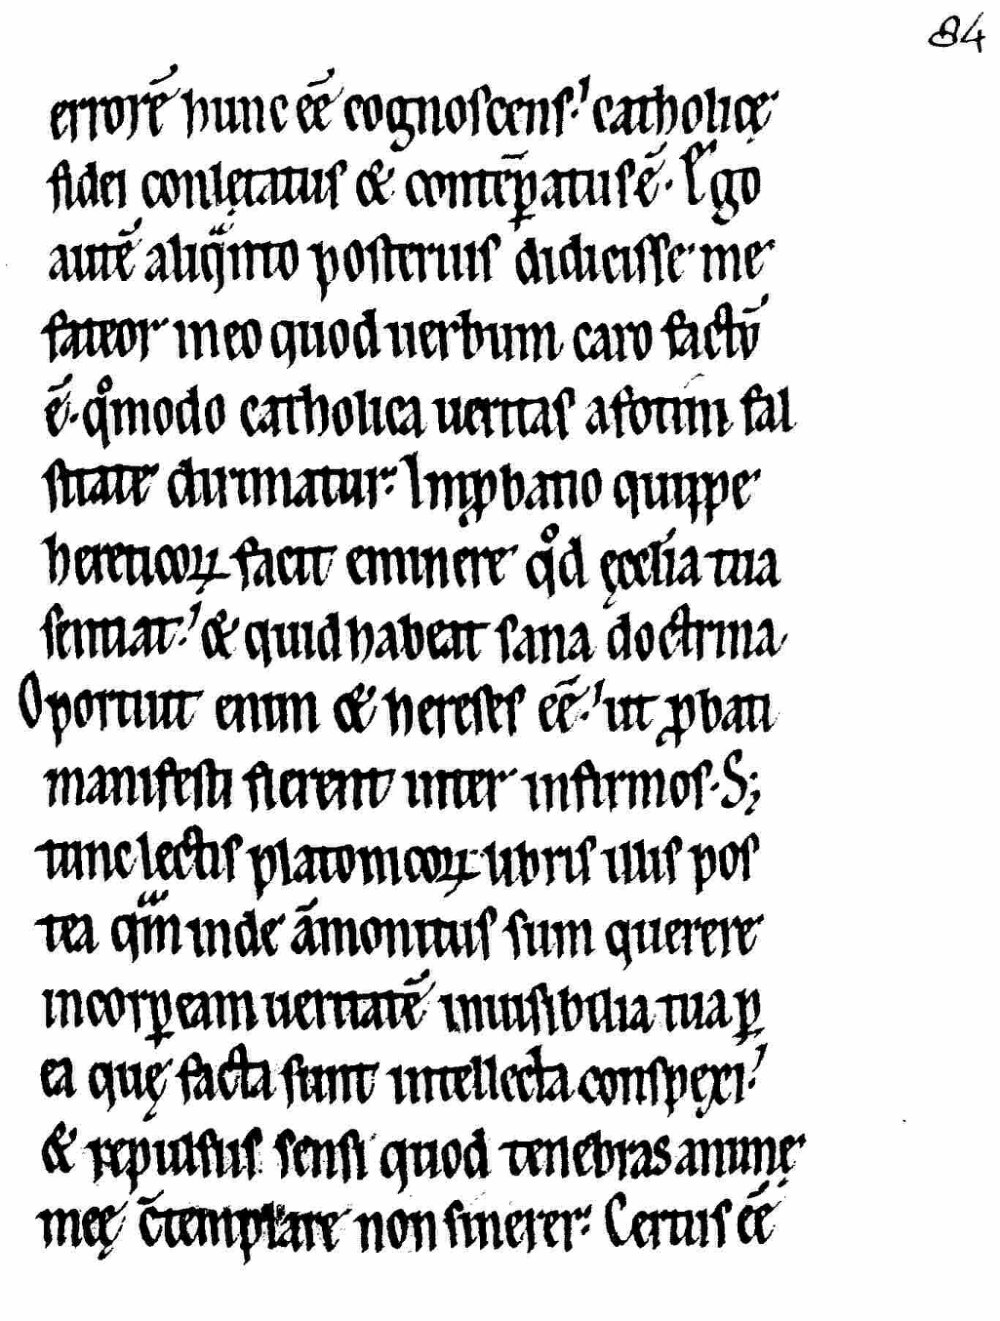 84
errorē hunc eē cognoscens. catholicę
fidei conlętatus & contēp̱atus ē. Ego
autē aliqͣnto posterius didicisse me
fateor in eo quod uerbum caro factū
ē. qͦmodo catholica ueritas a fotini fal
sitate dirimatur. Inꝓbatio quippe
hereticoꝝ facit eminere qͦd ęcclīa tua
sentiat. & quid habeat sana doctrina
Oportuit enim & hereses eē. ut ꝓbati
manifesti fierent inter infirmos. S;
tunc lectis platonicoꝝ libris illis pos
tea qͣm inde āmonitus sum querere
incorꝑeam ueritatē inuisibilia tua ꝑ
ea quę facta sunt intellecta conspęxi.
& repulsus sensi quod tenebras animę
meę c̄templare non sinerer. Certus eē